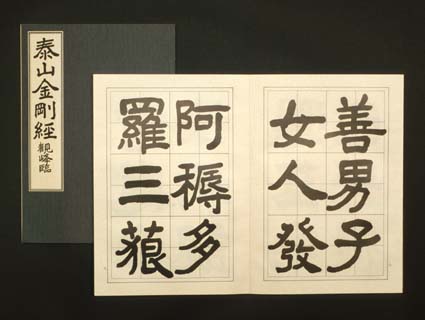 泰山金剛經
觀峰臨
善男子
女人發
阿耨多
羅三藐